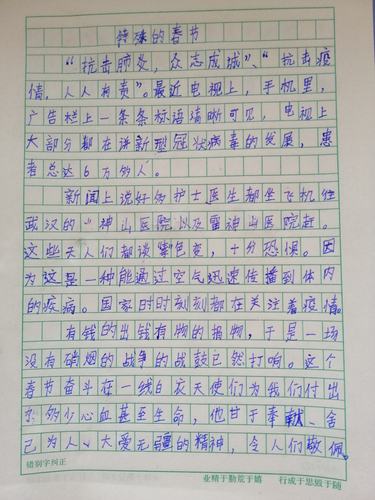 特殊的春节
“抗击肺炎,众志成城”、“抗击疫
情,人人有责”。最近电视上,手机里,
广告栏上一条条标语清晰可见,电视上
大部分都在讲新型冠状病毒的发展,患
者总达6万多人。
新闻上说好多护士医生都坐飞机往
武汉的“神山医院以及雷神山医院赶。
这些天人们都谈 色变,十分恐惧。因
为这是一种能通过空气迅速传播到体内
的疾病。国家时时刻刻都在关注着疫情。
有钱的出钱有物的捐物,于是一场
没有硝烟的战争的战鼓已然打响。这个
春节奋斗在一线白衣天使们为我们付出
多少心血甚至生命,他甘于奉献、舍
己为人、大爱无疆的精神,令人们敬佩。
错别字纠正
业精于勤荒于嬉 行成于思毁于随